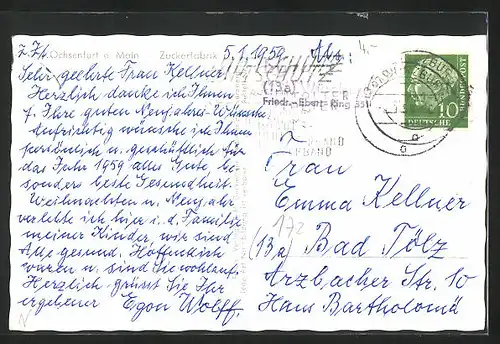 Ochsenfurt a. Main Zuckerfabrik
z. Zt. 5.1.1959
4.-
Sehr geehrte Frau Kellner!
Herzlich danke ich Ihnen
f. Ihre guten Neujahrs-Wünsche
Aufrichtig wünsche ich Ihnen
persönlich u. geschäftlich für
das Jahr 1959 alles Gute, be-
sonders beste Gesundheit.
Weihnachten u. Neujahr
verlebte ich hier i. d. Familie
meiner Kinder, wir sind
Alle gesund. Hoffentlich
waren u. sind Sie wohlauf.
Herzlich grüsst Sie Ihr
ergebener Egon Wolff.
(13a)
Friedr.-Ebert-Ring 35
DEUTSCHE BUNDESPOST
10
Frau
Emma Kellner
172
(13a) Bad Tölz
Arzbacher Str. 10
Haus Bartholomä